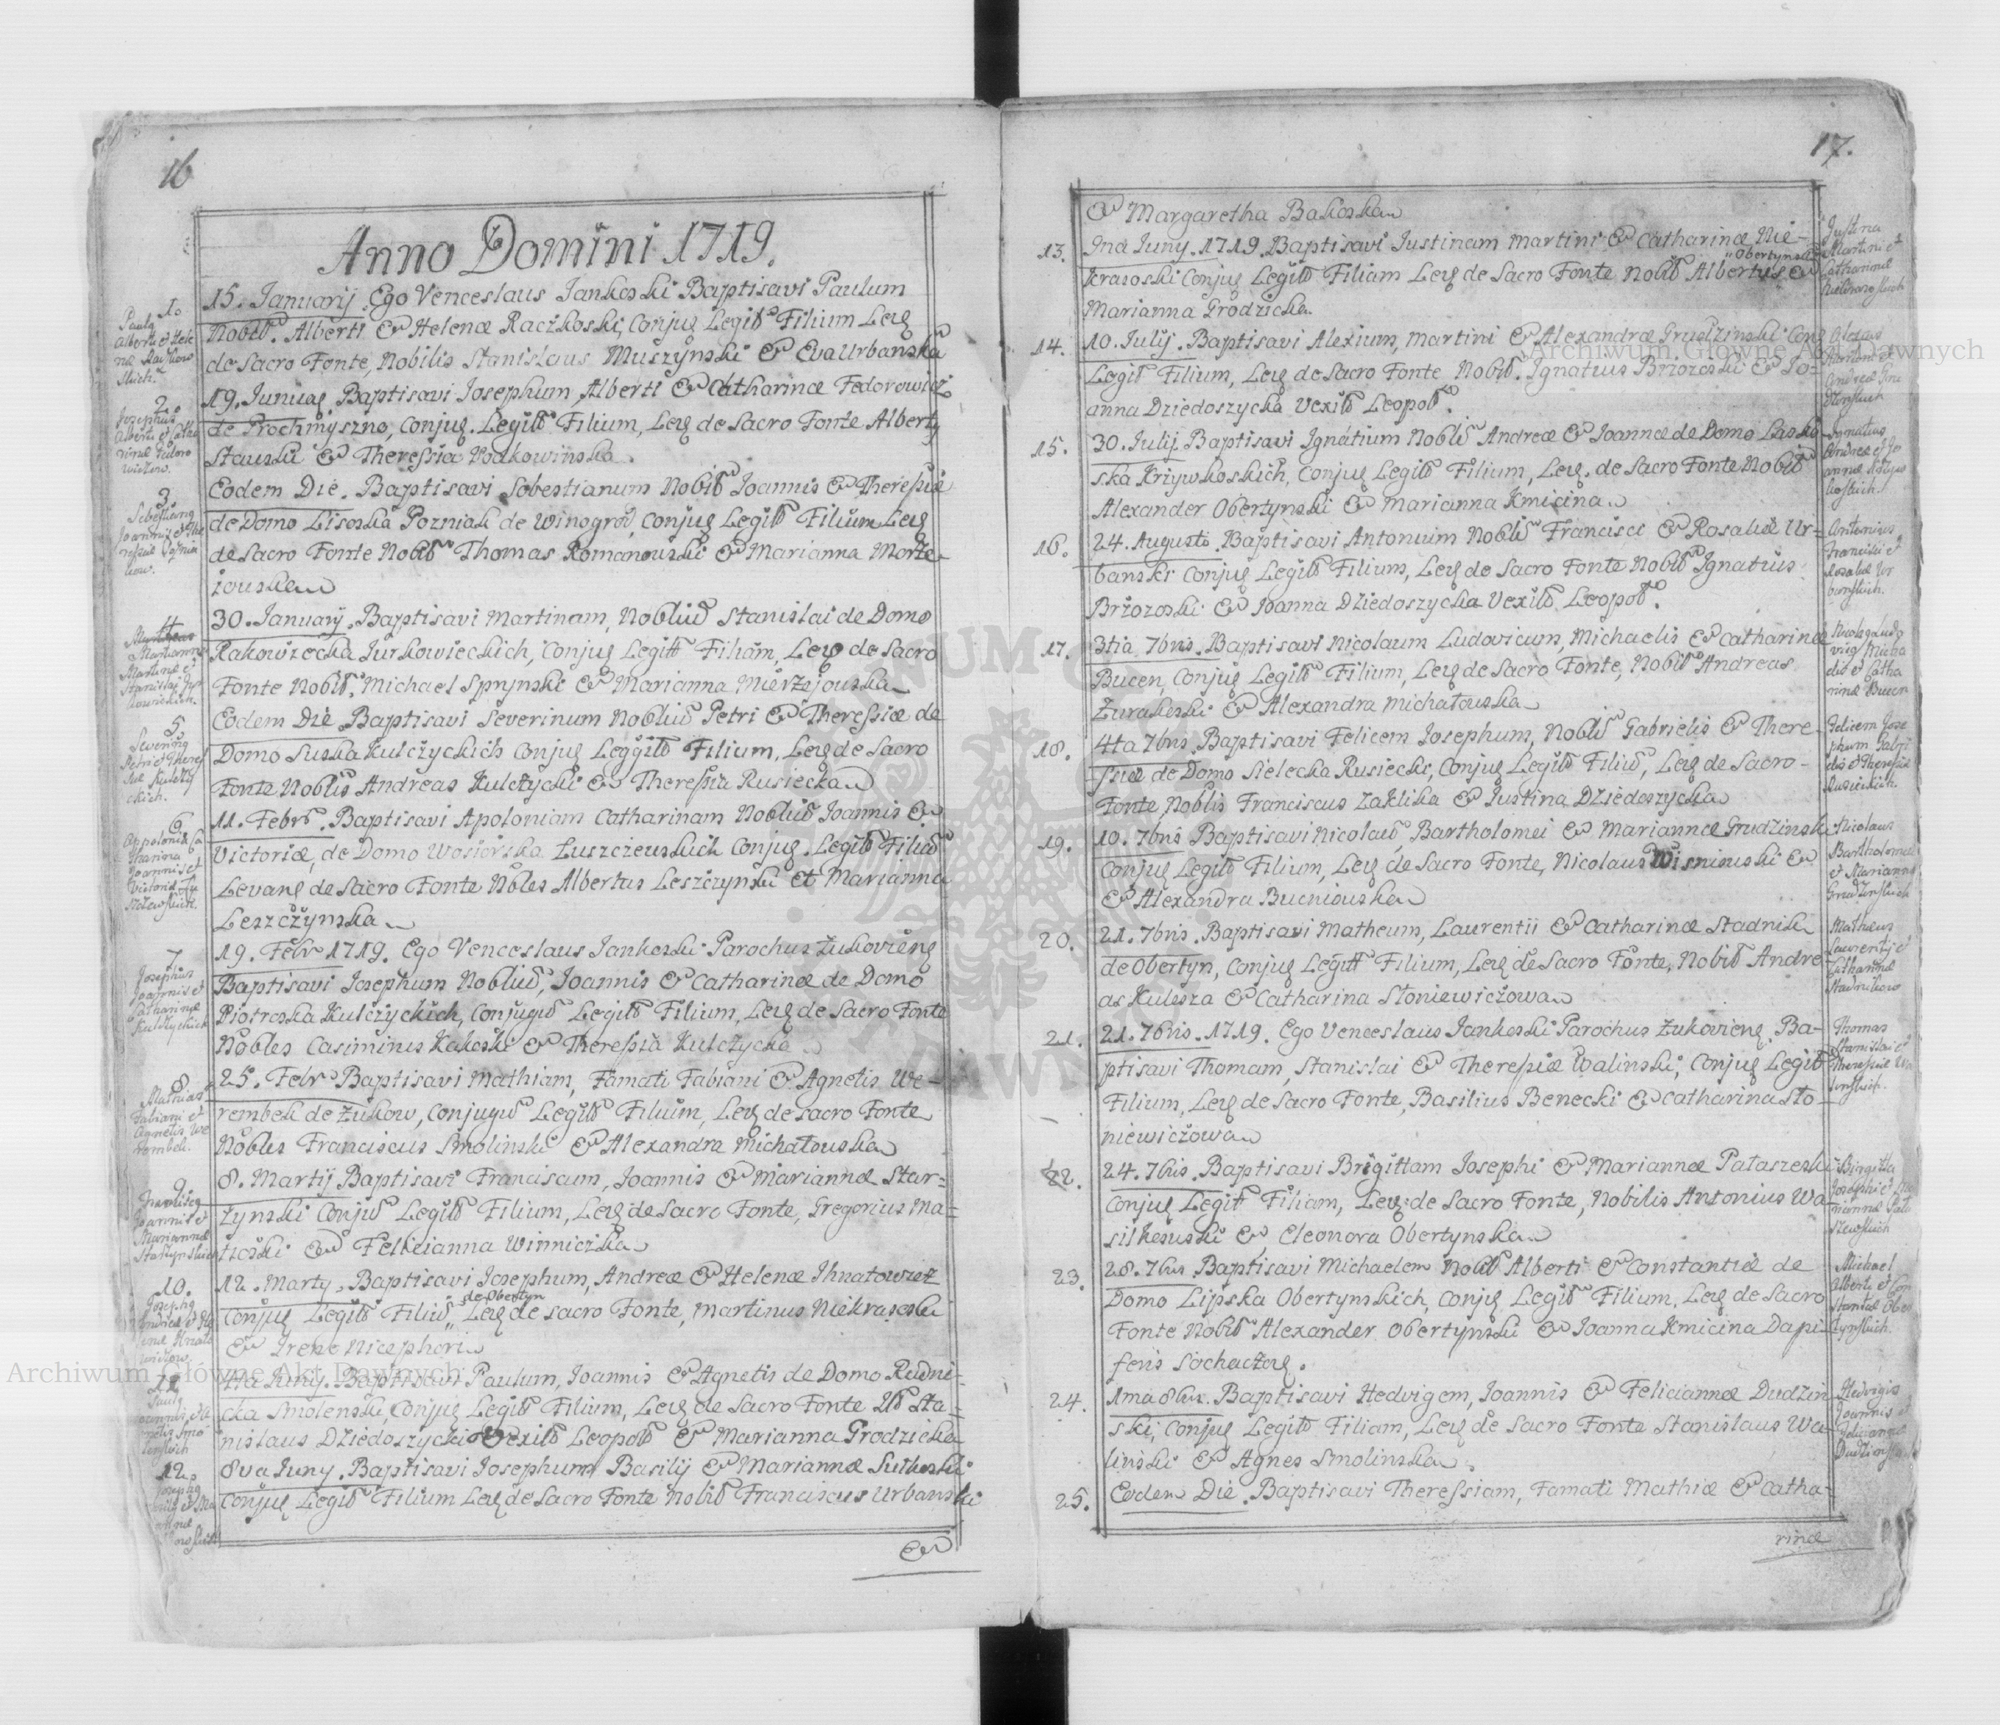 16
Anno Domini 1719.
1.
Paulq
Alberti et Hele
næ Raczkow
skich.
15. Januarij Ego Venceslaus Jankoski Baptisavi Paulum
Nobil. Alberti & Helenæ Raczkoski, Conjug Legit Filium Lev
de Sacro Fonte, Nobilis Stanislaus Muszynski & Eva Urbanska
2.
Josephus
Alberti et Catha
rinæ Fedoro
wiczow.
19. Junuar. Baptisavi Josephum Alberti & Catharinæ Fedorowicz
de Prochmyszno, Conjug. Legit Filium, Lev de Sacro Fonte Alberty
Stauski & Theressia Vodkowinska.
3.
Sebestianq
Joannis et The
ressiæ Pozniа
kow.
Eodem Die. Baptisavi Sobestianum Nobil Joannis & Theressiæ
de Domo Lisoska Pozniak de Winogrod, Conjug Legit Filium Lev
de Sacro Fonte Nobil Thomas Romanouski & Marianna Morze
iouska
4.
Marianna
Martina
Stanislai Jur
kowieckich.
30. January. Baptisavi Martinam, Nobliu Stanislai de Domo
Rakowiecka Jurkowieckich, Conjug Legitt Filiam, Lev de Sacro
Fonte Nobil. Michael Sprynski & Marianna Mierzejouska
5.
Severinq
Petri et Theres
siæ Kulczy
ckich.
Eodem Die Baptisavi Severinum Nobliu Petri & Theressiæ de
Domo Suska Kulczyckich Conjug Leggit Filium, Lev de Sacro
Fonte Noblis Andreas Kulczycki & Theressia Rusiecka
6
Appolonia Ca
tharina
Joannis et
Victoriæ Lu
szczewskich.
11. Febr. Baptisavi Apoloniam Catharinam Nobliu Joannis &
Victoriæ, de Domo Wosiorska Łuszczeuskich Conjug. Legit Filiu
Levang de Sacro Fonte Nobles Albertus Leszczynski et Marianna
Leszczynska
7
Josephus
Joannis et
Catharinæ
Kulczyckich
19. Febr 1719. Ego Venceslaus Jankoski Parochus Zukovieng
Baptisavi Josephum Nobliu, Joannis & Catharinæ de Domo
Piotroska Kulczyckich, Conjugu Legit Filium, Lev de Sacro Fonte
Nobles Casiminus Kakoski & Theressia Kulczycka
8.
Mathias
Fabiani et
Agnetis We
rembek.
25. Febr Baptisavi Mathiam, Famati Fabiani & Agnetis We-
rembek de Zukow, Conjugu Legit Filium, Lev de sacro Fonte
Nobles Franciscus Smolinski & Alexandra Michałouska
9.
Franciscq
Joannis et
Mariannæ
Starzynskich
8. Martij Baptisavi Franciscum, Joannis & Mariannæ Star-
zynski Conju Legit Filium, Lev de Sacro Fonte, Gregorius Ma-
troski & Felicianna Winniczka
10.
Josephq
Andreæ et He
lenæ Hnato
wiczow.
12. Marty. Baptisavi Josephum, Andreæ & Helenæ Ihnatowicz
de Obertyn
Conjug Legit Filiu, Lev de sacro Fonte, Martinus Niekrasoski
& Irene Nicephori
11
Paulq
Joannis, et A
gnetis Smo
lenskich
4ta Juny. Baptisavi Paulum, Joannis & Agnetis de Domo Rudni-
cka Smolenski, Conjug Legit Filium, Lev de Sacro Fonte Sta-
nislaus Dziedoszycki Vexill Leopol & Marianna Grodzicka
12.
Josephq
8va Juny. Baptisavi Josephum Basilij & Mariannæ Sutkoski
Conjug Legit Filium Lev de Sacro Fonte Nobil Franciscus Urbanski
&
17.
& Margaretha Bakoska
13.
Ina Juny. 1719. Baptisavi Justinam Martini & Catharinæ Nie-
Obertynski
krasoski Conjug Legit Filiam Lev de Sacro Fonte Nobil Albertus &
Marianna Grodzicka
Justina
Martini et
Catharinæ
Niekrasoskich
14.
10. Julij. Baptisavi Alexium, Martini & Alexandræ Grudzinski Conj
Legit Filium, Lev de Sacro Fonte Nobil. Ignatius Brzozoski & Jo-
anna Dziedoszycka Vexill Leopol.
Alexius
Martini et
Andreæ Gru
dzinskich
15.
30. Julij Baptisavi Ignatium Nobliu Andreæ & Joannæ de Domo Lasko
ska Krzywkoskich, Conjug Legit Filium, Lev. de Sacro Fonte Nobil
Alexander Obertynski & Marianna Kmicina
Ignatius
Andreæ et Jo
annæ Krzyw
koskich.
16.
24. Augusti. Baptisavi Antonium Nobliu Francisci & Rosaliæ Ur-
banski Conjug Legit Filium, Lev de Sacro Fonte Nobil Ignatius
Brzozoski & Joanna Dziedoszycka Vexill Leopol.
Antonius
Francisci et
Rosaliæ Ur
banskich.
17.
3tia 7bris. Baptisavi Nicolaum Ludovicum, Michaelis & Catharinæ
Bucen, Conjug Legit Filium, Lev de Sacro Fonte, Nobil Andreas
Zurakoski & Alexandra Michałouska
Nicolaq Ludo
vicq Micha
elis et Catha
rinæ Bucen
18.
4ta 7bris. Baptisavi Felicem Josephum, Nobliu Gabrielis & There-
ssiæ de Domo Sielecka Rusiecki, Conjug Legit Filiu, Lev de Sacro-
Fonte, Noblis Franciscus Zaklika & Justina Dziedoszycka
Felicem Jose
phum Gabri
elis et Theresiæ
Rusieckich.
19.
10. 7bris Baptisavi Nicolau Bartholomei & Mariannæ Grudzinski
Conjug Legit Filium, Lev de Sacro Fonte, Nicolaus Wisniouski &
& Alexandra Bucniouska
Nicolaus
Bartholomei
et Mariannæ
Grudzinskich
20.
21. 7bris. Baptisavi Matheum, Laurentii & Catharinæ Stadnik
de Obertyn, Conjug Legitt Filium, Lev de Sacro Fonte, Nobil Andre-
as Kulesza & Catharina Słoniewiczowa
Matheus
Laurentij et
Catharinæ
Stadnikow
21.
21. 7bris. 1719. Ego Venceslaus Jankoski Parochus Zukovieng. Ba-
ptisavi Thomam, Stanislai & Theressiæ Walinski, Conjug Legit
Filium, Lev de Sacro Fonte, Basilius Benecki & Catharina Sło-
niewiczowa
Thomas
Stanislai et
Theresiæ Wa
linskich.
22.
24. 7bris. Baptisavi Brigittam Josephi & Mariannæ Pataszeski
Conjug Legit Filiam, Lev de Sacro Fonte, Nobilis Antonius Wa
silkouski & Eleonora Obertynska
Birgitta
Josephi et Ma
riannæ Pata
szewskich
23.
28. 7bris Baptisavi Michaelem Nobil Alberti & Constantiæ de
Domo Lipska Obertynskich, Conjug Legit Filium, Lev de Sacro
Fonte Nobil Alexander Obertynski & Joanna Kmicina Dapi-
feris Sochaczev.
Michael
Alberti et Con
stantiæ Ober
tynskich.
24.
1ma 8bris. Baptisavi Hedvigem, Joannis & Feliciannæ Dudzin
ski, Conjug Legit Filiam, Lev de Sacro Fonte Stanislaus Wa-
linski & Agnes Smolinska.
Hedvigis
Joannis et
Feliciannæ
Dudzinskich
25.
Eodem Die. Baptisavi Theressiam, Famati Mathiæ & Catha-
rinæ
Archiwum Główne Akt Dawnych
Archiwum Główne Akt Dawnych